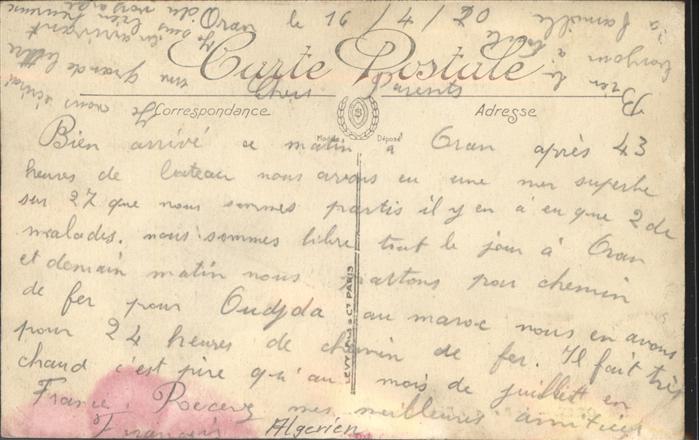 Oran le 16/4/20
Carte Postale
Correspondance
Adresse
Modèle Déposé
Chers Parents
Bien arrivé ce matin a Oran après 43
heures de bateau nous avons eu une mer superbe
sur 27 que nous sommes partis il y en à eu que 2 de
malades. nous sommes libre tout le jour à Oran
et demain matin nous partons par chemin
de fer pour Oudjda au maroc nous en avons
pour 24 heures de chemin de fer. Il fait très
chaud c'est pire qu'au mois de juillet en
France. Recevez mes meilleures amitiés
François
Algerien
Bien le
bonjour à toute
la famille
Je vous écrirai
une grande lettre
en arrivant
Je suis bien
du voyage
LEVY SONS & Cie PARIS